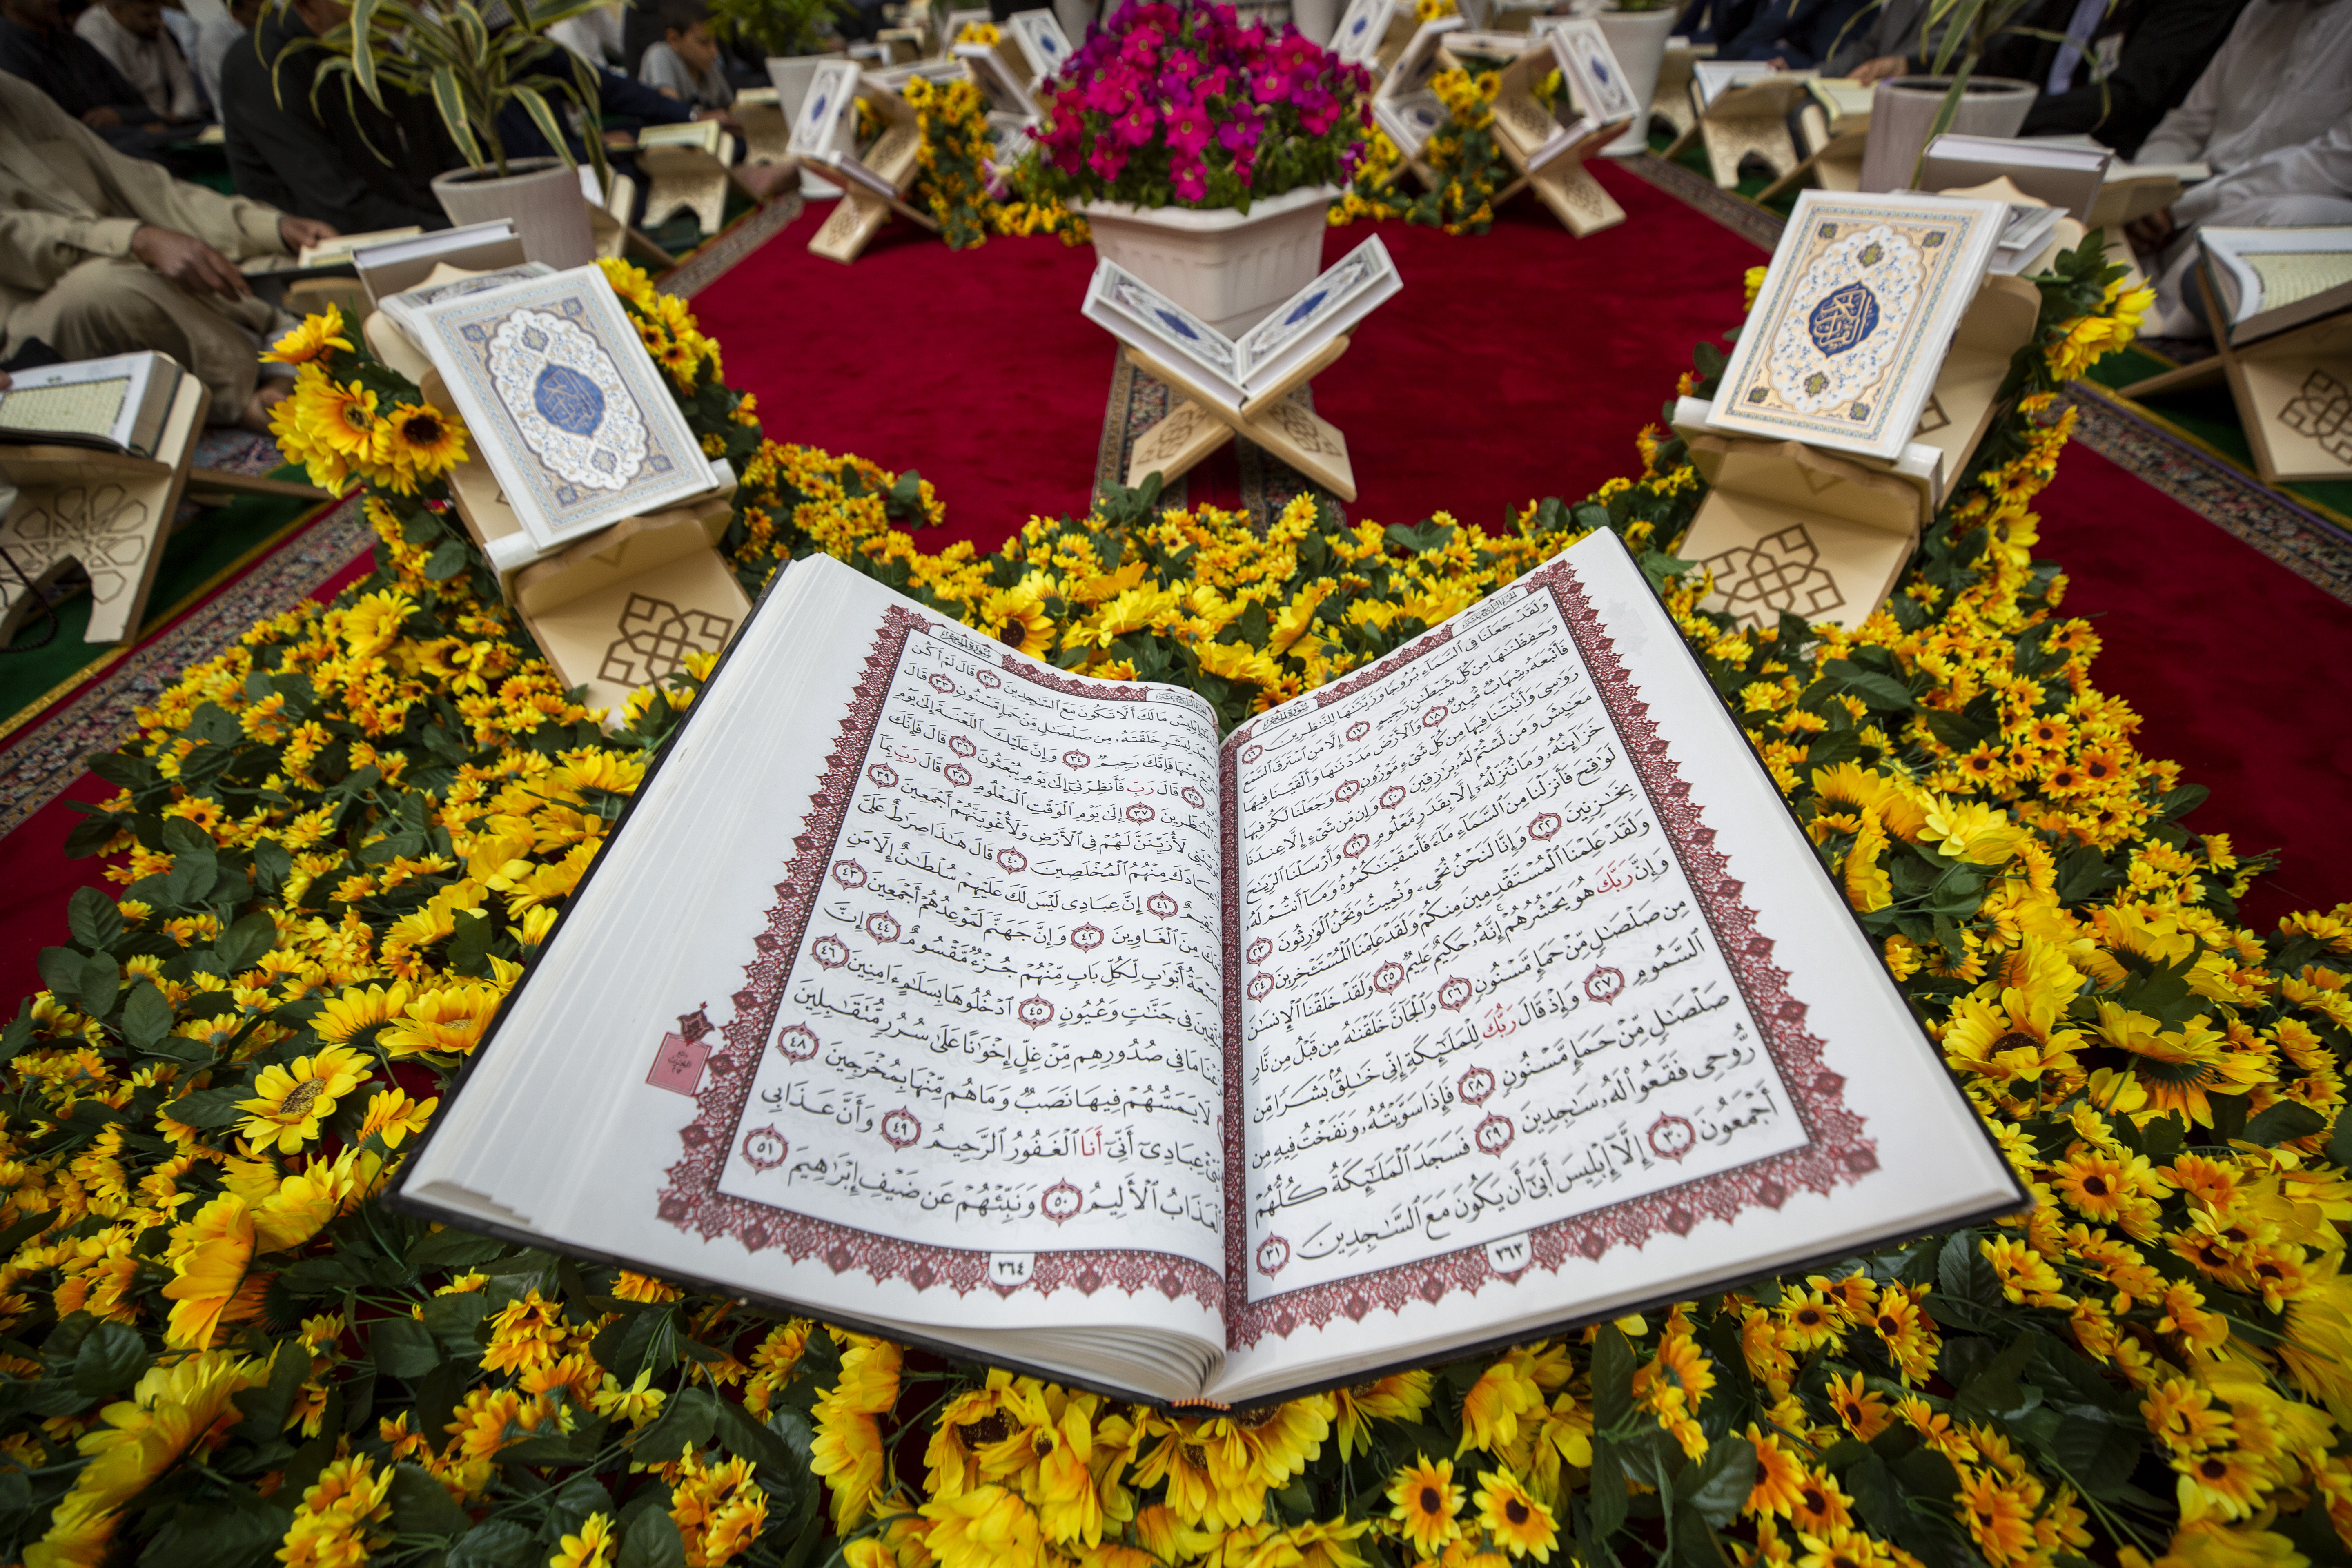 سُورَةُ الحِجْر
وَلَقَدْ جَعَلْنَا فِى ٱلسَّمَآءِ بُرُوجًا وَزَيَّنَّٰهَا لِلنَّٰظِرِينَ ١٦
وَحَفِظْنَٰهَا مِن كُلِّ شَيْطَٰنٍ رَّجِيمٍ ١٧ إِلَّا مَنِ ٱسْتَرَقَ ٱلسَّمْعَ
فَأَتْبَعَهُۥ شِهَابٌ مُّبِينٌ ١٨ وَٱلْأَرْضَ مَدَدْنَٰهَا وَأَلْقَيْنَا فِيهَا
رَوَٰسِىَ وَأَنۢبَتْنَا فِيهَا مِن كُلِّ شَىْءٍ مَّوْزُونٍ ١٩ وَجَعَلْنَا لَكُمْ فِيهَا
مَعَٰيِشَ وَمَن لَّسْتُمْ لَهُۥ بِرَٰزِقِينَ ٢٠ وَإِن مِّن شَىْءٍ إِلَّا عِندَنَا
خَزَآئِنُهُۥ وَمَا نُنَزِّلُهُۥٓ إِلَّا بِقَدَرٍ مَّعْلُومٍ ٢١ وَأَرْسَلْنَا ٱلرِّيَٰحَ
لَوَٰقِحَ فَأَنزَلْنَا مِنَ ٱلسَّمَآءِ مَآءً فَأَسْقَيْنَٰكُمُوهُ وَمَآ أَنتُمْ لَهُۥ
بِخَٰزِنِينَ ٢٢ وَإِنَّا لَنَحْنُ نُحْىِۦ وَنُمِيتُ وَنَحْنُ ٱلْوَٰرِثُونَ ٢٣
وَلَقَدْ عَلِمْنَا ٱلْمُسْتَقْدِمِينَ مِنكُمْ وَلَقَدْ عَلِمْنَا ٱلْمُسْتَـْٔخِرِينَ ٢٤
وَإِنَّ رَبَّكَ هُوَ يَحْشُرُهُمْ إِنَّهُۥ حَكِيمٌ عَلِيمٌ ٢٥ وَلَقَدْ خَلَقْنَا ٱلْإِنسَٰنَ
مِن صَلْصَٰلٍ مِّنْ حَمَإٍ مَّسْنُونٍ ٢٦ وَٱلْجَآنَّ خَلَقْنَٰهُ مِن قَبْلُ مِن نَّارِ
ٱلسَّمُومِ ٢٧ وَإِذْ قَالَ رَبُّكَ لِلْمَلَٰٓئِكَةِ إِنِّى خَٰلِقٌۢ بَشَرًا مِّن
صَلْصَٰلٍ مِّنْ حَمَإٍ مَّسْنُونٍ ٢٨ فَإِذَا سَوَّيْتُهُۥ وَنَفَخْتُ فِيهِ مِن
رُّوحِى فَقَعُوا۟ لَهُۥ سَٰجِدِينَ ٢٩ فَسَجَدَ ٱلْمَلَٰٓئِكَةُ كُلُّهُمْ
أَجْمَعُونَ ٣٠ إِلَّآ إِبْلِيسَ أَبَىٰٓ أَن يَكُونَ مَعَ ٱلسَّٰجِدِينَ ٣١
٢٦٣
سُورَةُ الحِجْر
يَٰٓإِبْلِيسُ مَا لَكَ أَلَّا تَكُونَ مَعَ ٱلسَّٰجِدِينَ ٣٢ قَالَ لَمْ أَكُن
لِبَشَرٍ خَلَقْتَهُۥ مِن صَلْصَٰلٍ مِّنْ حَمَإٍ مَّسْنُونٍ ٣٣ قَالَ
مِنْهَا فَإِنَّكَ رَجِيمٌ ٣٤ وَإِنَّ عَلَيْكَ ٱللَّعْنَةَ إِلَىٰ يَوْمِ
٣٥ قَالَ رَبِّ فَأَنظِرْنِىٓ إِلَىٰ يَوْمِ يُبْعَثُونَ ٣٦ قَالَ فَإِنَّكَ
ٱلْمُنظَرِينَ ٣٧ إِلَىٰ يَوْمِ ٱلْوَقْتِ ٱلْمَعْلُومِ ٣٨ قَالَ رَبِّ بِمَآ
لَأُزَيِّنَنَّ لَهُمْ فِى ٱلْأَرْضِ وَلَأُغْوِيَنَّهُمْ أَجْمَعِينَ ٣٩
عِبَادَكَ مِنْهُمُ ٱلْمُخْلَصِينَ ٤٠ قَالَ هَٰذَا صِرَٰطٌ عَلَىَّ
٤١ إِنَّ عِبَادِى لَيْسَ لَكَ عَلَيْهِمْ سُلْطَٰنٌ إِلَّا مَنِ
مِنَ ٱلْغَاوِينَ ٤٢ وَإِنَّ جَهَنَّمَ لَمَوْعِدُهُمْ أَجْمَعِينَ ٤٣
سَبْعَةُ أَبْوَٰبٍ لِّكُلِّ بَابٍ مِّنْهُمْ جُزْءٌ مَّقْسُومٌ ٤٤ إِنَّ
فِى جَنَّٰتٍ وَعُيُونٍ ٤٥ ٱدْخُلُوهَا بِسَلَٰمٍ ءَامِنِينَ ٤٦
مَا فِى صُدُورِهِم مِّنْ غِلٍّ إِخْوَٰنًا عَلَىٰ سُرُرٍ مُّتَقَٰبِلِينَ
لَا يَمَسُّهُمْ فِيهَا نَصَبٌ وَمَا هُم مِّنْهَا بِمُخْرَجِينَ ٤٨
عِبَادِىٓ أَنِّىٓ أَنَا ٱلْغَفُورُ ٱلرَّحِيمُ ٤٩ وَأَنَّ عَذَابِى
ٱلْعَذَابُ ٱلْأَلِيمُ ٥٠ وَنَبِّئْهُمْ عَن ضَيْفِ إِبْرَٰهِيمَ ٥١
٢٦٤
القرآن الكريم
القرآن الكريم